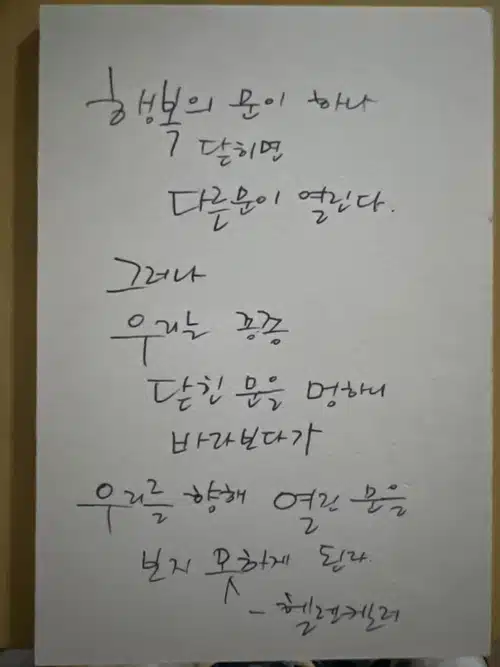 행복의 문이 하나
닫히면
다른문이 열린다.
그러나
우리는 종종
닫힌 문을 멍하니
바라보다가
우리를 향해 열린 문을
보지 못하게 된다
- 헬렌켈러